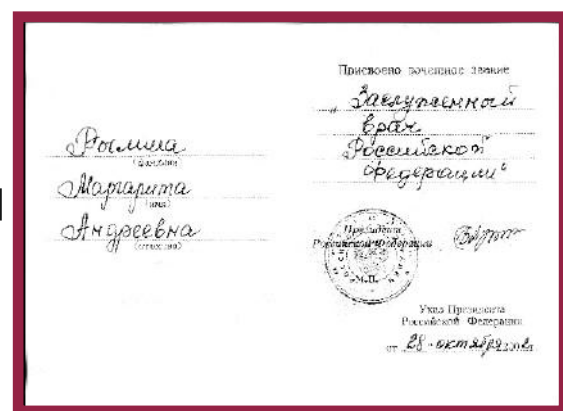 (фамилия)
Маргарита
(имя)
Андреевна
(отчество)
Присвоено почетное звание
„Заслуженный
врач
Российской
Федерации“
Президент
Российской Федерации
М.П.
Указ Президента
Российской Федерации
от 28 октября